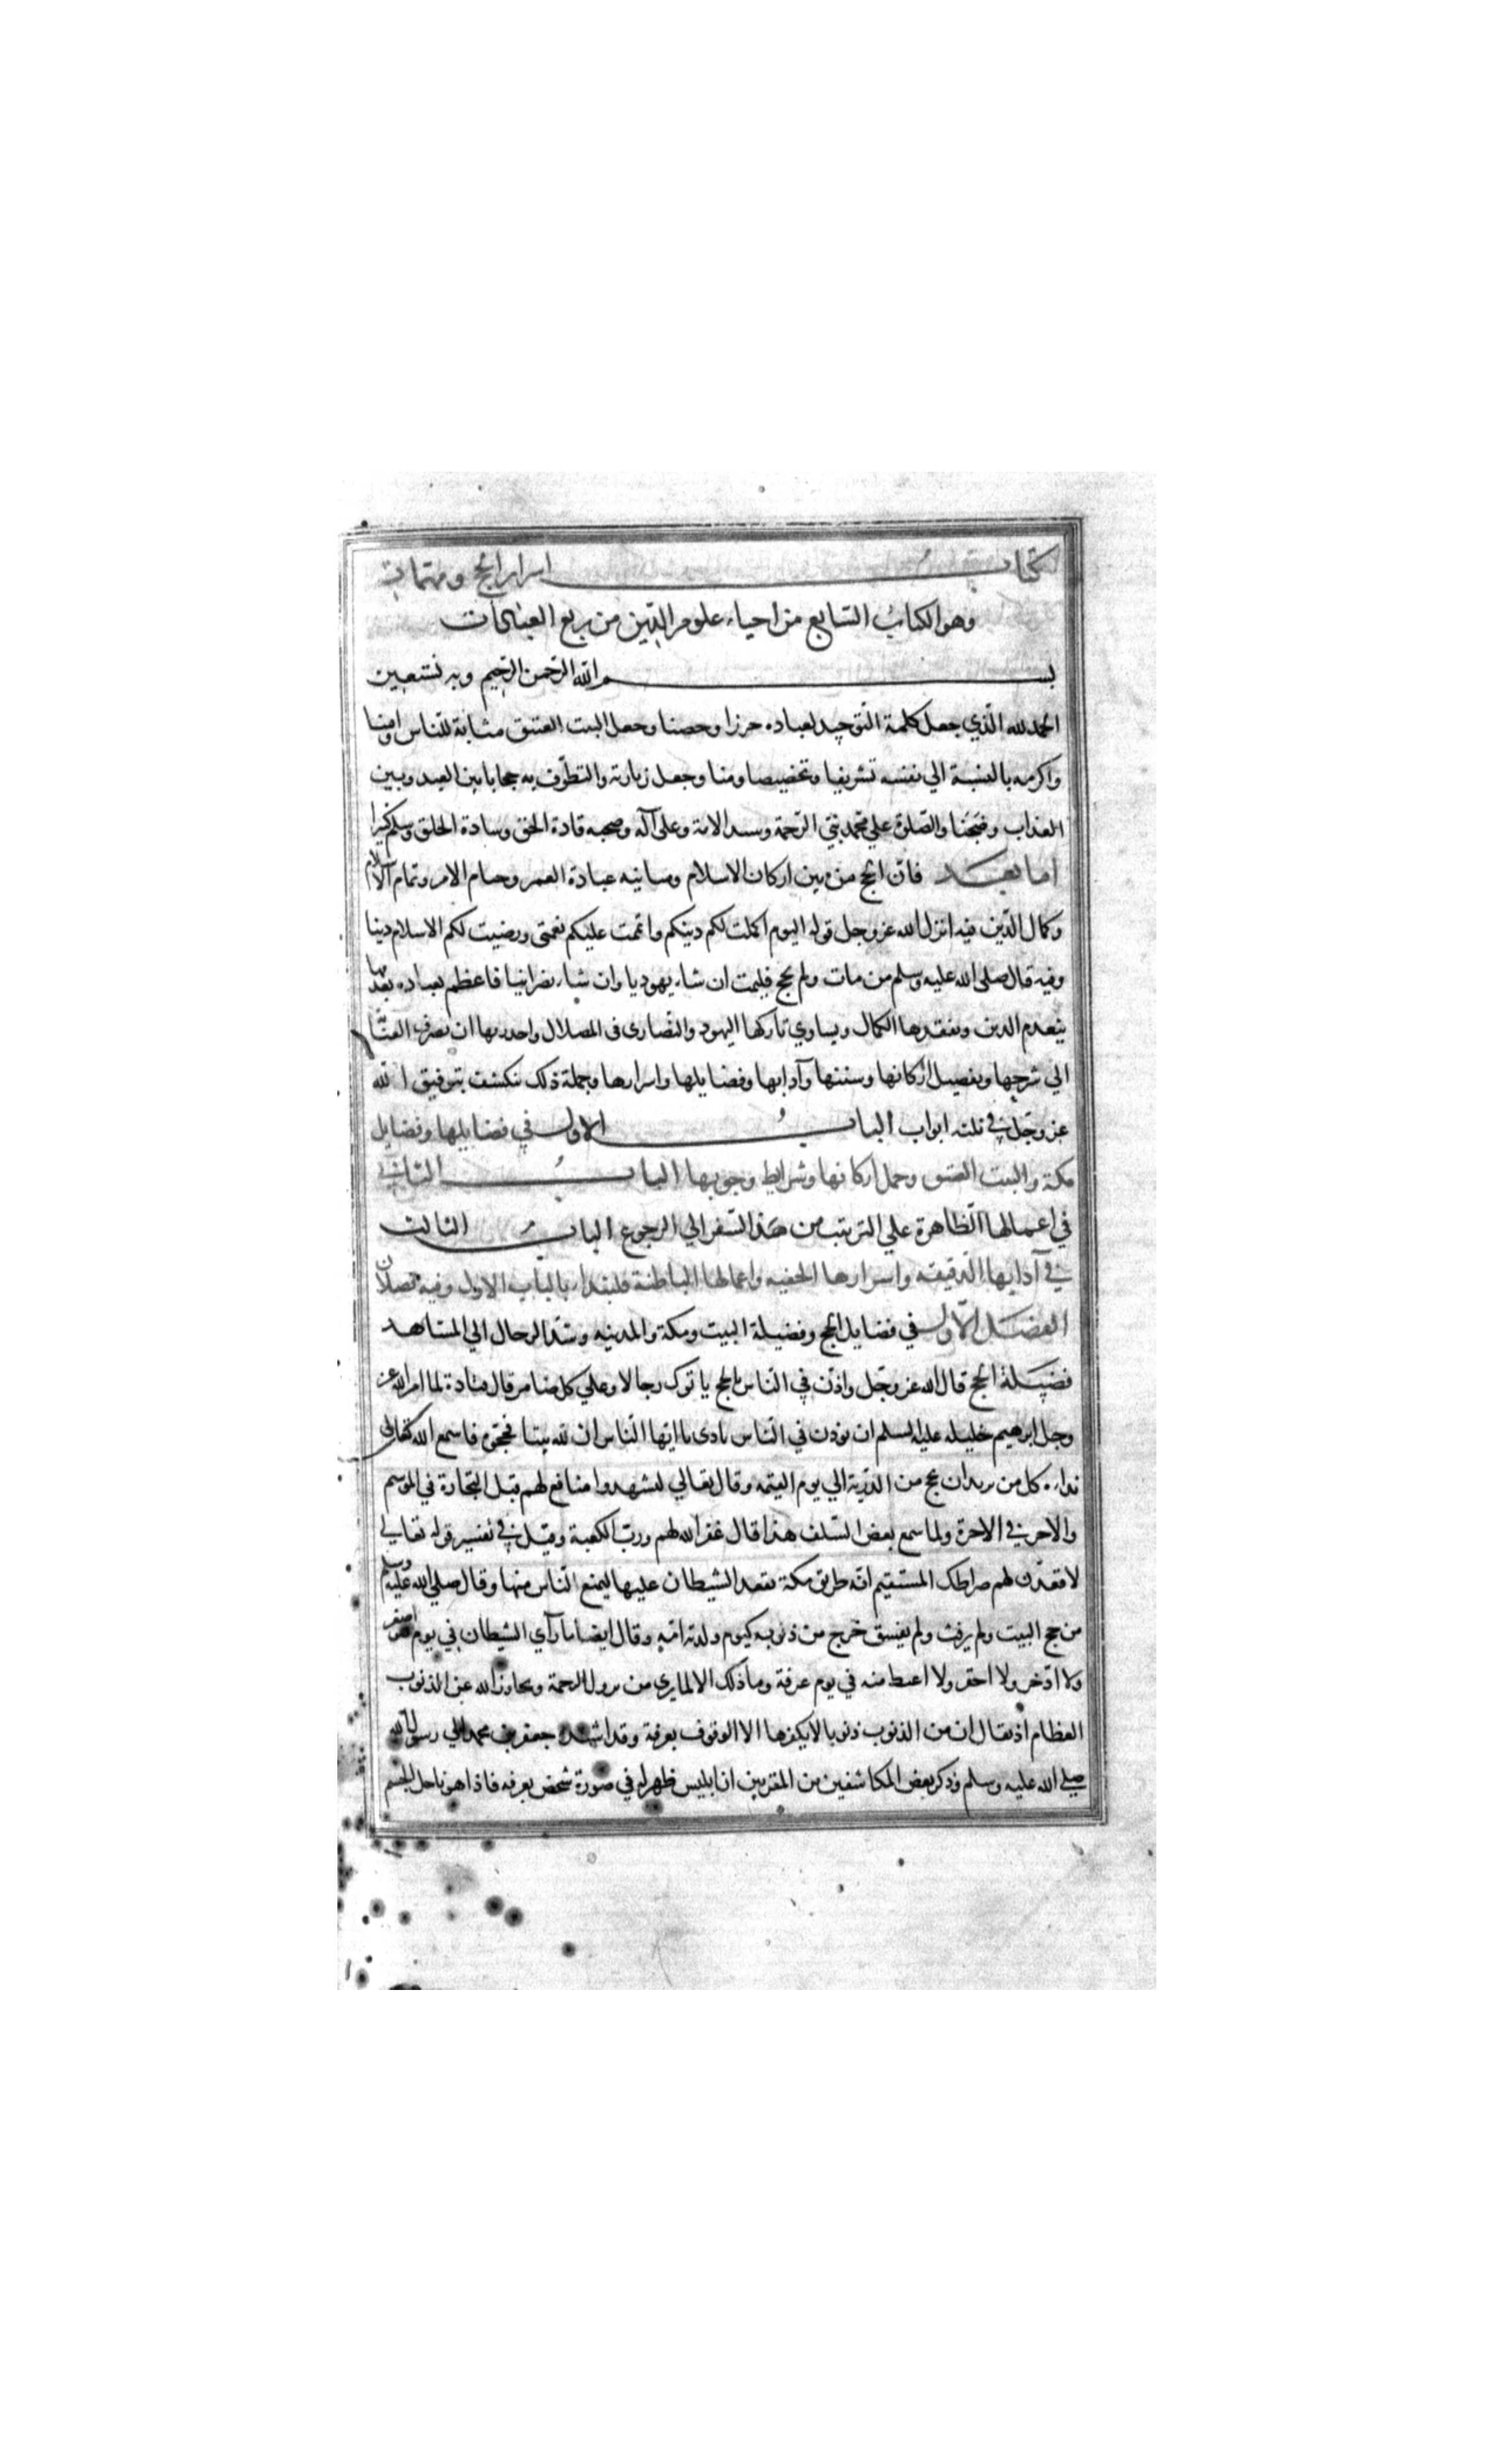 كتاب اسرار الحج ومهماته
وهو الكتاب السابع من احياء علوم الدين من ربع العبادات
بسم الله الرحمن الرحيم وبه نستعين
الحمد لله الذي جعل كلمة التوحيد لعباده حرزا وحصنا وجعل البيت العتيق مثابة للناس وامنا
واكرمه بالنسبة الي نفسه تشريفا وتخصيصا ومنا وجعل زيارته والتطوف به حجابا بين العبد وبين
العذاب ومجنا والصلوة علي محمد نبي الرحمة وسيد الامة وعلى آله وصحبه قادة الحق وسادة الخلق وسلم كثيرا
اما بعد فان الحج من بين اركان الاسلام ومبانيه عبادة العمر وختام الامر وتمام الاسلام
وكمال الدين فيه انزل الله عز وجل قوله اليوم اكملت لكم دينكم واتممت عليكم نعمتى ورضيت لكم الاسلام دينا
وفيه قال صلى الله عليه وسلم من مات ولم يحج فليمت ان شاء يهوديا وان شاء نصرانيا فاعظم بعبادة بفقدها
ينعدم الدين وبفقدها الكمال ويساوي تاركها اليهود والنصارى في الضلال واجدر بها ان تصرف العناية
الي شرحها وتفصيل اركانها وسننها وآدابها وفضايلها واسرارها وجملة ذلك ينكشف بتوفيق الله
عز وجل في ثلثه ابواب الباب الاول في فضايلها وفضايل
مكة والبيت العتيق وجمل اركانها وشرايط وجوبها الباب الثاني
في اعمالها الظاهرة علي الترتيب من هذا السفر الي الرجوع الباب الثالث
في آدابها الدقيقه واسرارها الخفيه واعمالها الباطنة فليبدا بالباب الاول وفيه فصلان
الفصل الاول في فضايل الحج وفضيلة البيت ومكة والمدينه وشد الرحال الي المشاهد
فضيلة الحج قال الله عز وجل واذن في الناس بالحج ياتوك رجالا وعلي كل ضامر قال قتادة لما امر الله عز
وجل ابرهيم خليله عليه السلم ان يوذن في الناس نادى يا ايها الناس ان لله بيتا فحجوه فاسمع الله تعالى
نداءه كل من يريد ان يحج من الذرية الي يوم القيمة وقال تعالي ليشهدوا منافع لهم قيل التجارة في الموسم
والاجر في الاخرة ولما سمع بعض السلف هذا قال غفر الله لهم ورب الكعبة وقيل في تفسير قوله تعالي
لاقعدن لهم صراطك المستقيم انه طريق مكة يقعد الشيطان عليها ليمنع الناس منها وقال صلي الله عليه وسلم
من حج البيت ولم يرفث ولم يفسق خرج من ذنوبه كيوم ولدته امه وقال ايضا ما رآي الشيطان في يوم هو اصغر
ولا ادخر ولا احقر ولا اغيظ منه في يوم عرفة وما ذلك الا لما يرى من نزول الرحمة وتجاوز الله عن الذنوب
العظام اذ يقال ان من الذنوب ذنوبا لا يكفرها الا الوقوف بعرفة وقد اسنده جعفر بن محمد الي رسول الله
صلي الله عليه وسلم وذكر بعض المكاشفين من المقربين ان ابليس ظهر له في صورة شخص بعرفه فاذا هو ناحل الجسم